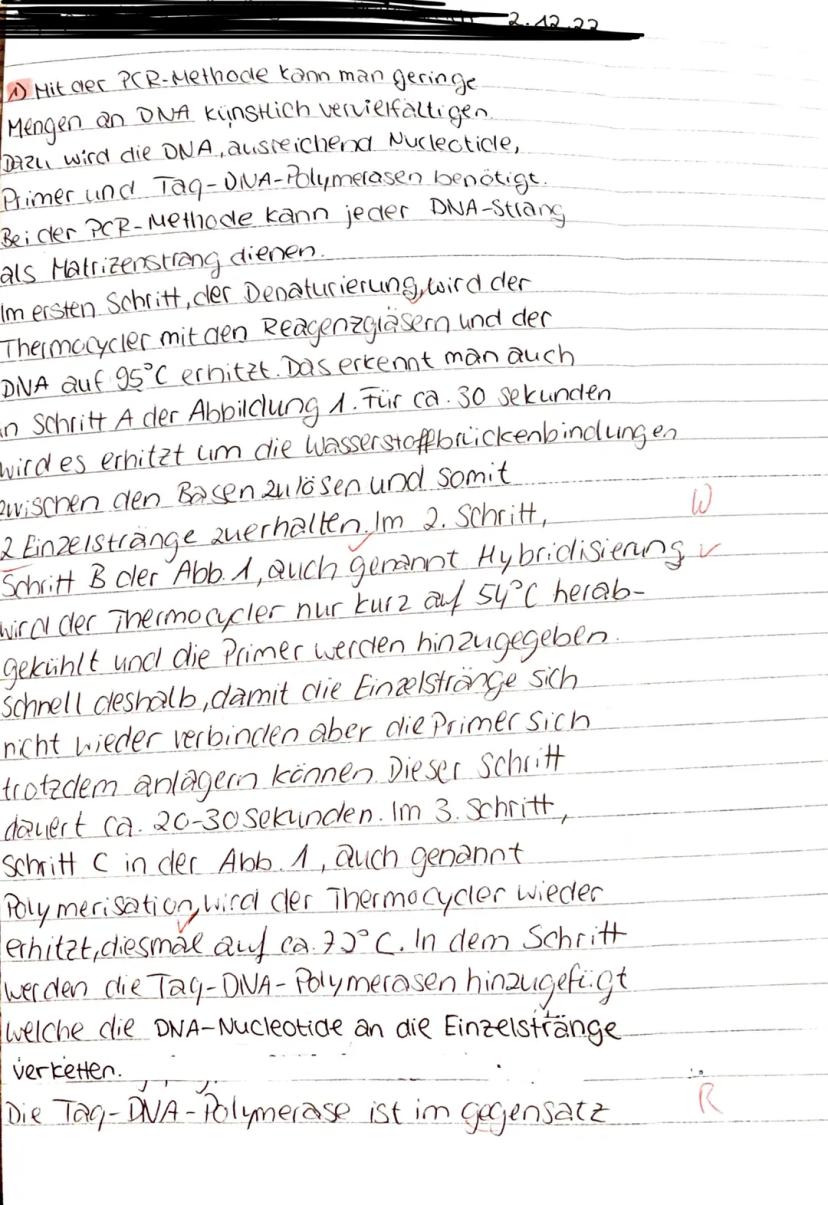 2.12.22
1) Mit der PCR-Methode kann man geringe
Mengen an DNA künstlich vervielfältigen.
Dazu wird die DNA, ausreichend Nucleotide,
Primer und Taq-DNA-Polymerasen benötigt.
Bei der PCR-Methode kann jeder DNA-Strang
als Matrizenstrang dienen.
Im ersten Schritt, der Denaturierung, wird der
Thermocycler mit den Reagenzgläsern und der
DNA auf 95°C erhitzt. Das erkennt man auch
in Schritt A der Abbildung 1. Für ca. 30 sekunden
wird es erhitzt um die Wasserstoffbrückenbindungen
zwischen den Basen zu lösen und somit
2 Einzelstränge zuerhalten. Im 2. Schritt, W
Schritt B der Abb. 1, auch genannt Hybridisierung
wird der Thermocycler nur kurz auf 54°C herab-
gekühlt und die Primer werden hinzugegeben.
Schnell deshalb, damit die Einzelstränge sich
nicht wieder verbinden aber die Primer sich
trotzdem anlagern können. Dieser Schritt
dauert ca. 20-30 Sekunden. Im 3. Schritt,
Schritt C in der Abb. 1, auch genannt
Polymerisation, wird der Thermocycler wieder
erhitzt, diesmal auf ca. 72°C. In dem Schritt
werden die Taq-DNA-Polymerasen hinzugefügt
welche die DNA-Nucleotide an die Einzelstränge
verketten.
Die Taq-DNA-Polymerase ist im gegensatz R